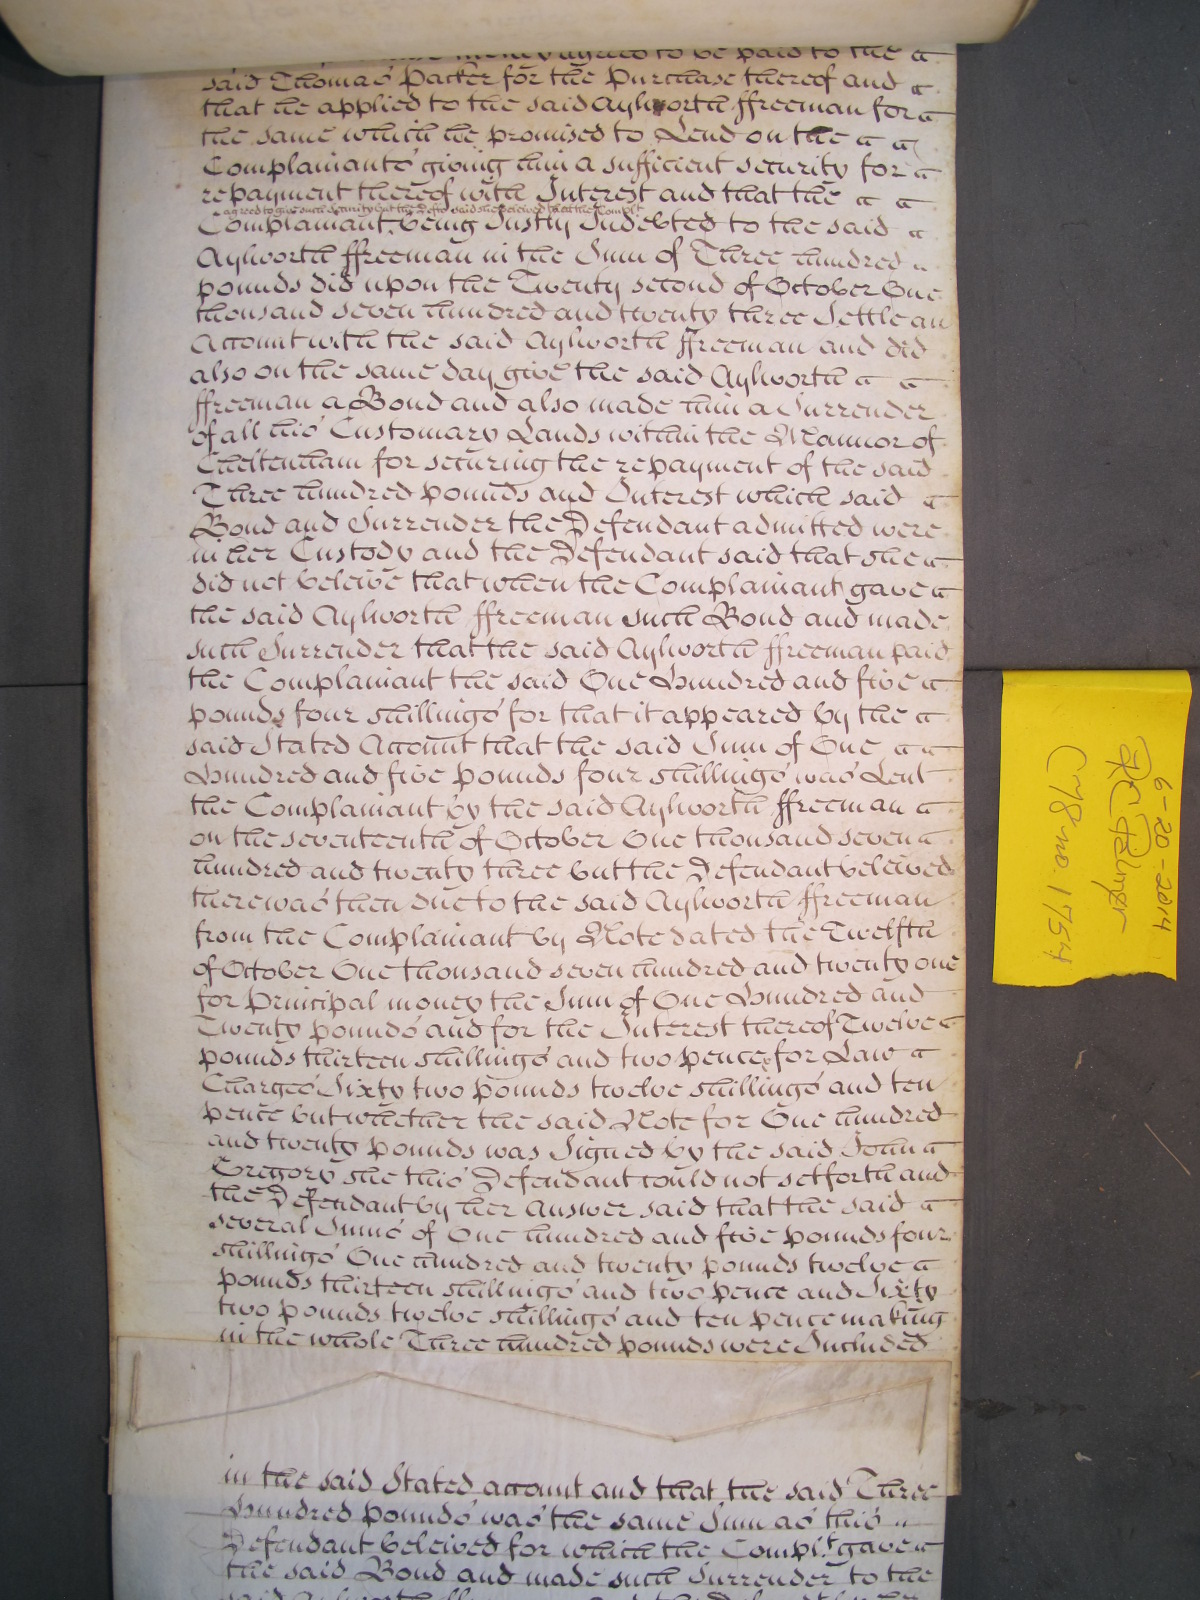 money agreed to be paid to the a
said Thomas Packer for the Purchase thereof and a
that he applied to the said Aylworth ffreeman for a
the same which he promised to Lend on the a a
Complainants giving him a sufficient security for a
repayment thereof with Interest and that the a a
agreed to give such security but the Deft said she beleived that the Complt
Complainant being Justly Indebted to the said a
Aylworth ffreeman in the Sum of Three hundred
pounds did upon the Twenty second of October One
thousand seven hundred and twenty three Settle an
Account with the said Aylworth ffreeman and did
also on the same day give the said Aylworth a a
ffreeman a Bond and also made him a Surrender
of all his Customary Lands within the Mannor of
Cheltenham for securing the repayment of the said
Three hundred pounds and Interest which said a
Bond and Surrender the Defendant admitted were
in her Custody and the Defendant said that she a
did not beleive that when the Complainant gave a
the said Aylworth ffreeman such Bond and made
such Surrender that the said Aylworth ffreeman paid
the Complainant the said One Hundred and five a
pounds four shillings for that it appeared by the a
said Stated Account that the said Sum of One a a
Hundred and five pounds four shillings was Lent
the Complainant by the said Aylworth ffreeman a
on the seventeenth of October One thousand seven a
hundred and twenty three but the Defendant beleived
there was then due to the said Aylworth ffreeman
from the Complainant by Note dated the Twelfth
of October One thousand seven hundred and twenty one
for Principal money the Sum of One Hundred and
Twenty pounds and for the Interest thereof Twelve a
pounds thirteen shillings and two pence for Law a
Charges Sixty two pounds twelve shillings and ten
pence but whether the said Note for One hundred
and twenty pounds was Signed by the said John a
Gregory she this Defendant could not setforth and
the Defendant by her Answer said that the said a
several Sums of One hundred and five pounds four
shillings One hundred and twenty pounds twelve a
pounds thirteen shillings and two pence and Sixty
two pounds twelve shillings and ten pence making
in the whole Three hundred pounds were Included
in the said Stated account and that the said Three
Hundred pounds was the same Sum as this
Defendant beleived for which the Complt gave a
the said Bond and made such Surrender to the
said
6-20-2014
C78 no 1754